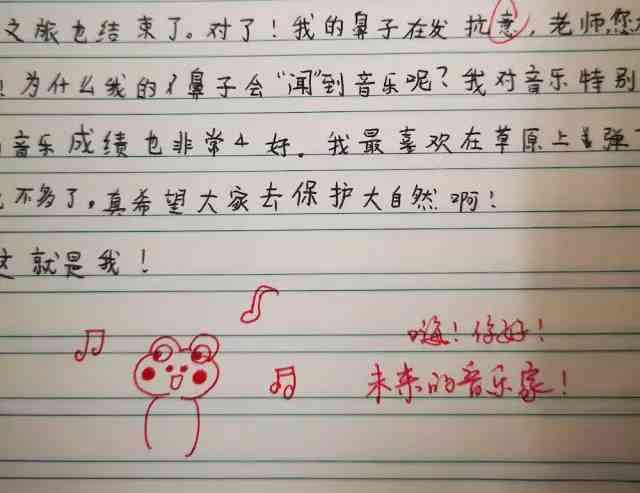 文旅也结束了。对了！我的鼻子在发抗意，老师您
！为什么我的鼻子会“闻”到音乐呢？我对音乐特别
音乐成绩也非常好。我最喜欢在草原上弹
不多了。真希望大家去保护大自然啊！
这就是我！
嗨！你好！
未来的音乐家！